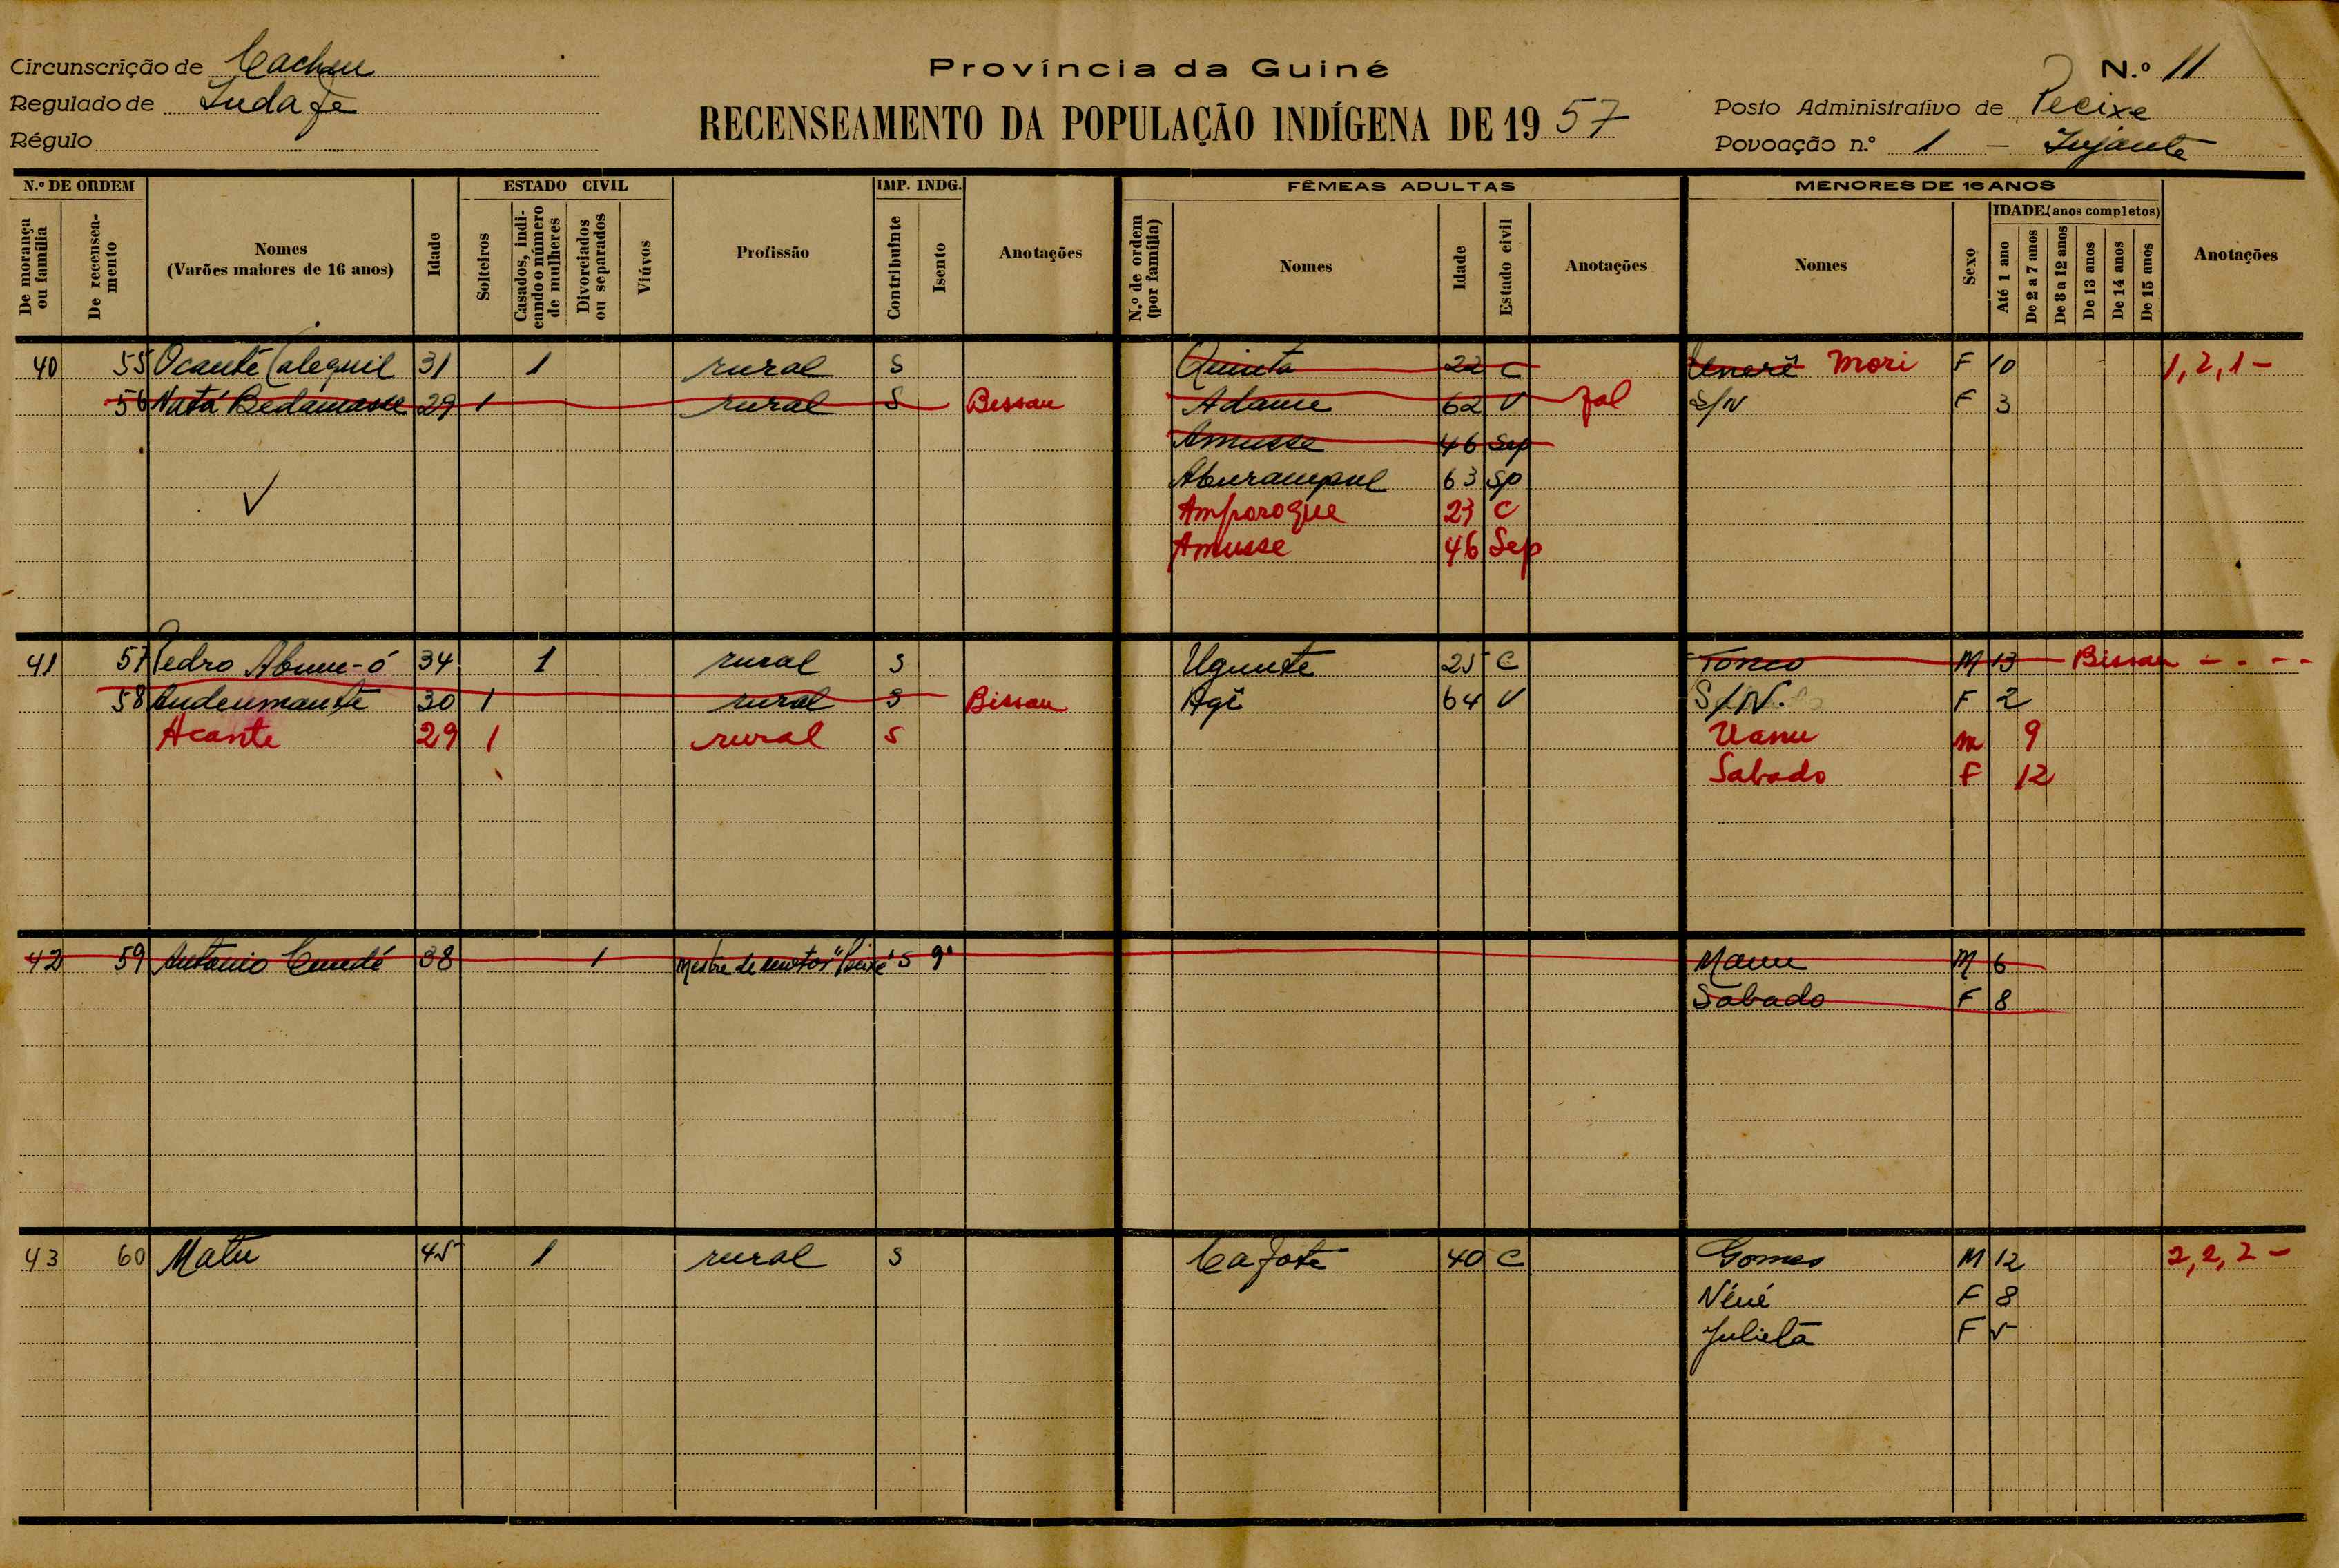 Circunscrição de Cacheu
Regulado de Indafe
Régulo
Província da Guiné
RECENSEAMENTO DA POPULAÇÃO INDÍGENA DE 1957
N.º 11
Posto Administrativo de Pecixe
Povoação n.º 1 - Injante
N.º DE ORDEM
De morança ou família
De recenseamento
Nomes
(Varões maiores de 16 anos)
Idade
ESTADO CIVIL
Solteiros
Casados, indicando o número de mulheres
Divorciados ou separados
Viúvos
Profissão
IMP. INDG.
Contribuinte
Isento
Anotações
FÊMEAS ADULTAS
N.º de ordem (por família)
Nomes
Idade
Estado civil
Anotações
MENORES DE 16 ANOS
Nomes
Sexo
IDADE (anos completos)
Até 1 ano
De 2 a 7 anos
De 8 a 12 anos
De 13 anos
De 14 anos
De 15 anos
Anotações
40 55 Ocante Calequil 31 1 rural S Quinta 22 C Mori F 10 1, 2, 1 -
56 Natá Bedamasse 29 1 rural S Bissau Adame 62 V fal S/N F 3
Amusse 46 Sep
Aburampul 63 Sp
Amporoque 23 C
Amusse 46 Sep
41 57 Pedro Abume-ó 34 1 rural S Ugunte 25 C Tonco M 13 Bissau - - - -
58 30 1 rural S Bissau Agê 64 V S/N. F 2
Acante 29 1 rural S Uanu m 9
Sabado F 12
42 59 Antonio Cundé 38 1 Mestre de motor "Pecixe" S 9ª Manu M 6
Sabado F 8
43 60 Matu 45 1 rural S Cafote 40 C Gomes M 12 2, 2, 2 -
Néné F 8
Julieta F 5